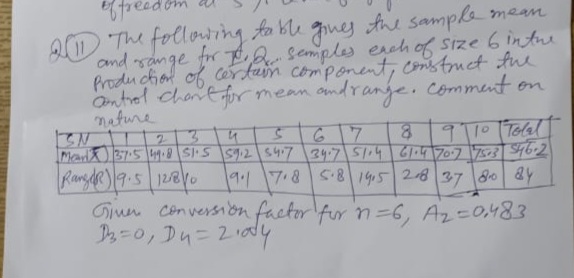 of freedom at 5 %
Q(11) The following table gives the sample mean
and range for 10 samples each of size 6 in the
Production of certain component, construct the
Control chart for mean and range. comment on
nature
SN 1 2 3 4 5 6 7 8 9 10 Total
Mean(X̄) 37.5 49.8 51.5 59.2 54.7 34.7 51.4 61.4 70.7 75.3 546.2
Range(R) 9.5 12.8 10 9.1 7.8 5.8 14.5 2.8 37 80 84
Given conversion factor for n=6, A2=0.483
D3=0, D4=2.004